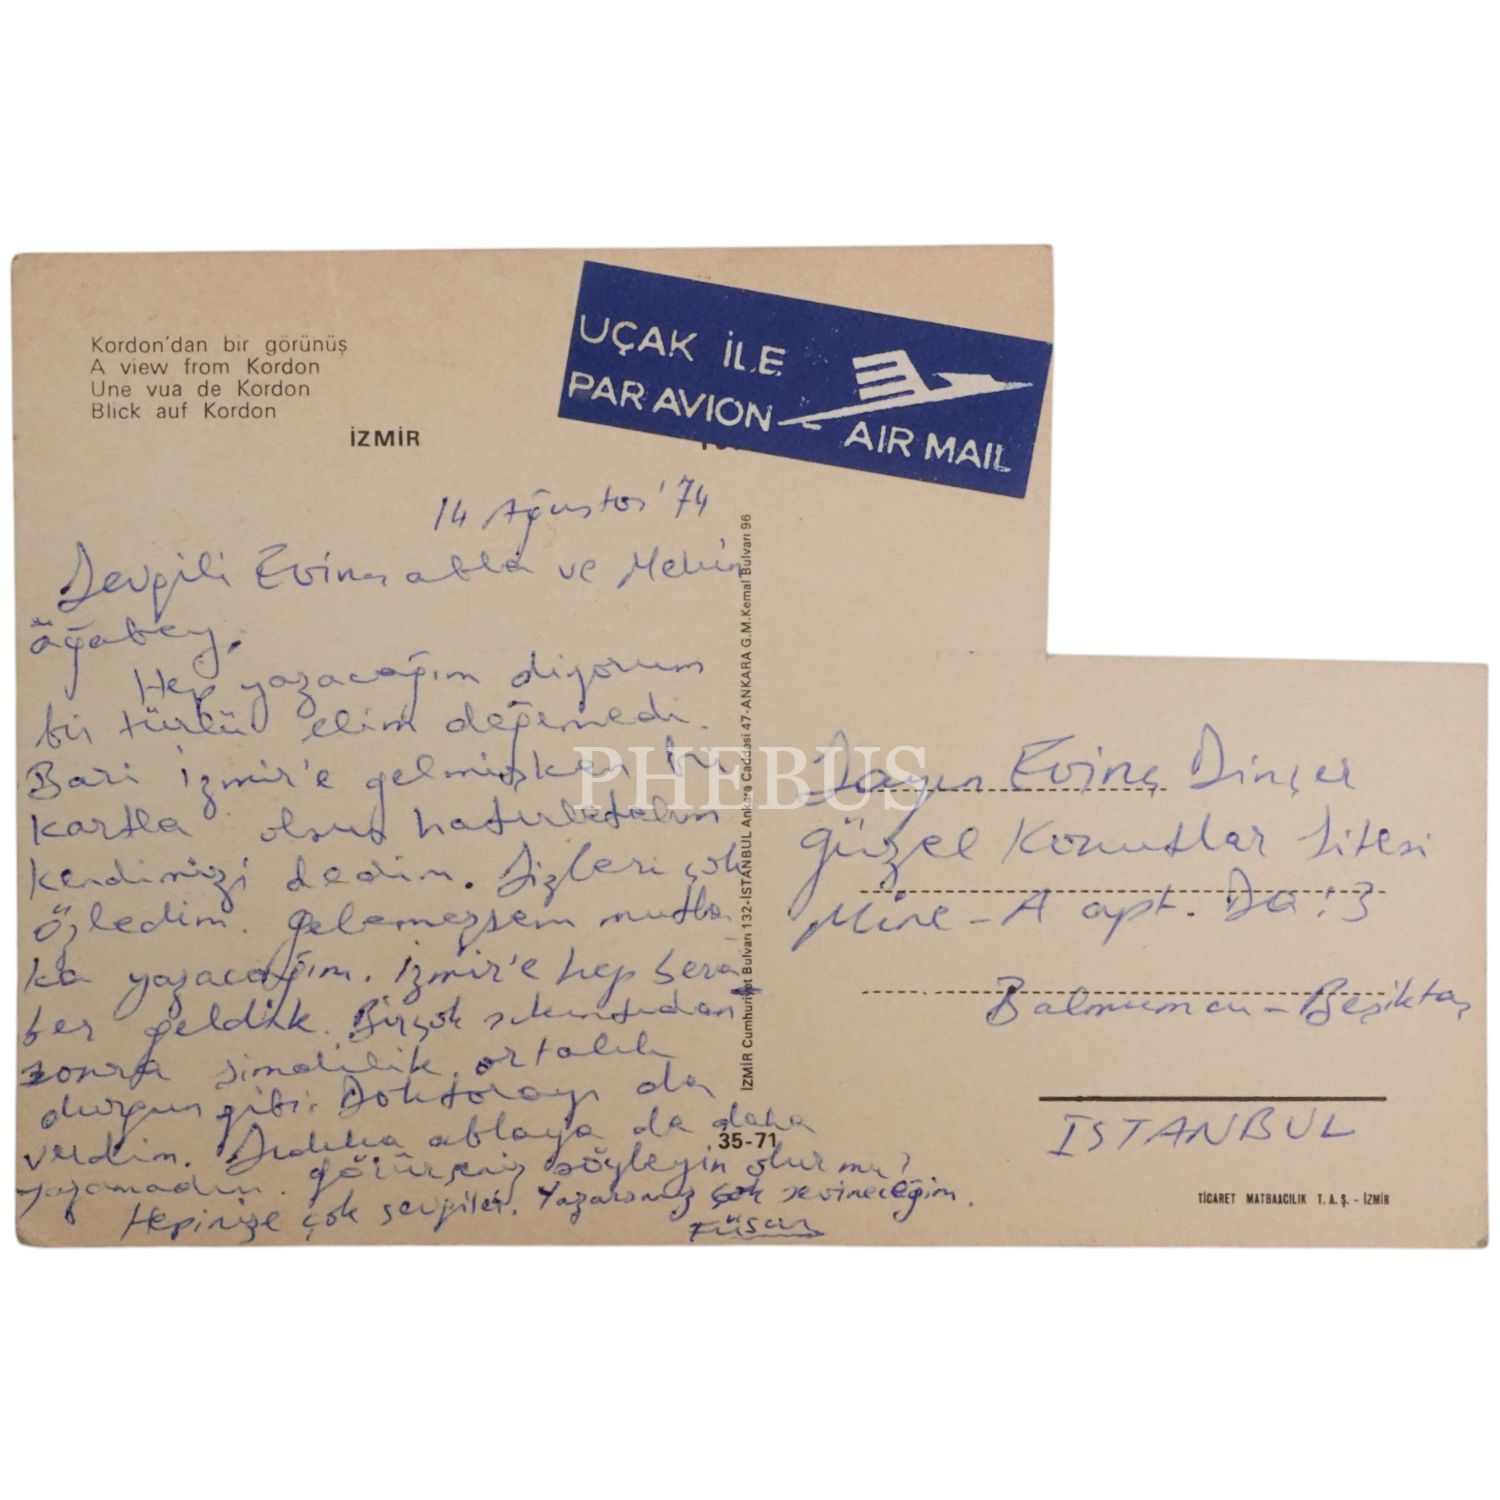 Kordon'dan bir görünüş
A view from Kordon
Une vua de Kordon
Blick auf Kordon
İZMİR
UÇAK İLE
PAR AVION
AIR MAIL
14 Ağustos '74
Sevgili Evinç abla ve Metin
ağabey,
Hep yazacağım diyorum
bir türlü elim değemedi.
Bari İzmir'e gelmişken bir
kartla olsun hatırlatalım
kendimizi dedim. Sizleri çok
özledim. Gelemezsem mutla-
ka yazacağım. İzmir'e hep bera-
ber geldik. Birçok sıkıntıdan
sonra şimdilik ortalık
durgun gibi. Doktorayı da
verdim. ablaya da daha
yazamadım. görürseniz söyleyin olur mu?
Hepinize çok sevgiler. Yazarsanız çok sevineceğim.
Füsun
İZMİR Cumhuriyet Bulvarı 132-İSTANBUL Ankara Caddesi 47-ANKARA G.M.Kemal Bulvarı 96
35-71
PHEBUS
Sayın Evinç Dinçer
Güzel Konutlar Sitesi
Mine-A apt. Da:3
Balmumcu-Beşiktaş
ISTANBUL
TİCARET MATBAACILIK T.A.Ş.-İZMİR